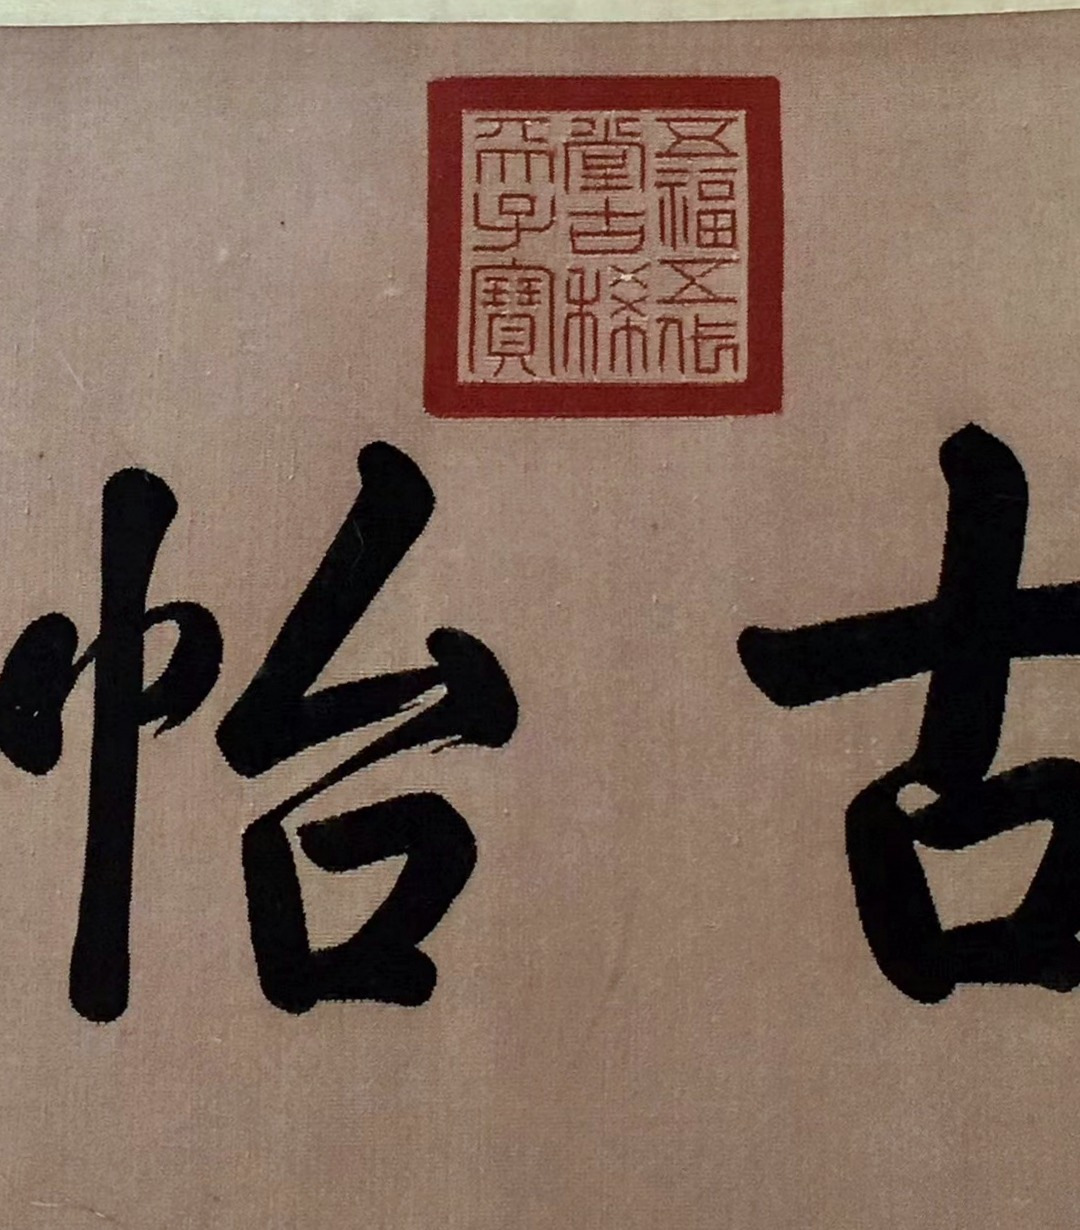 五福五代
堂古稀
天子寶
古怡